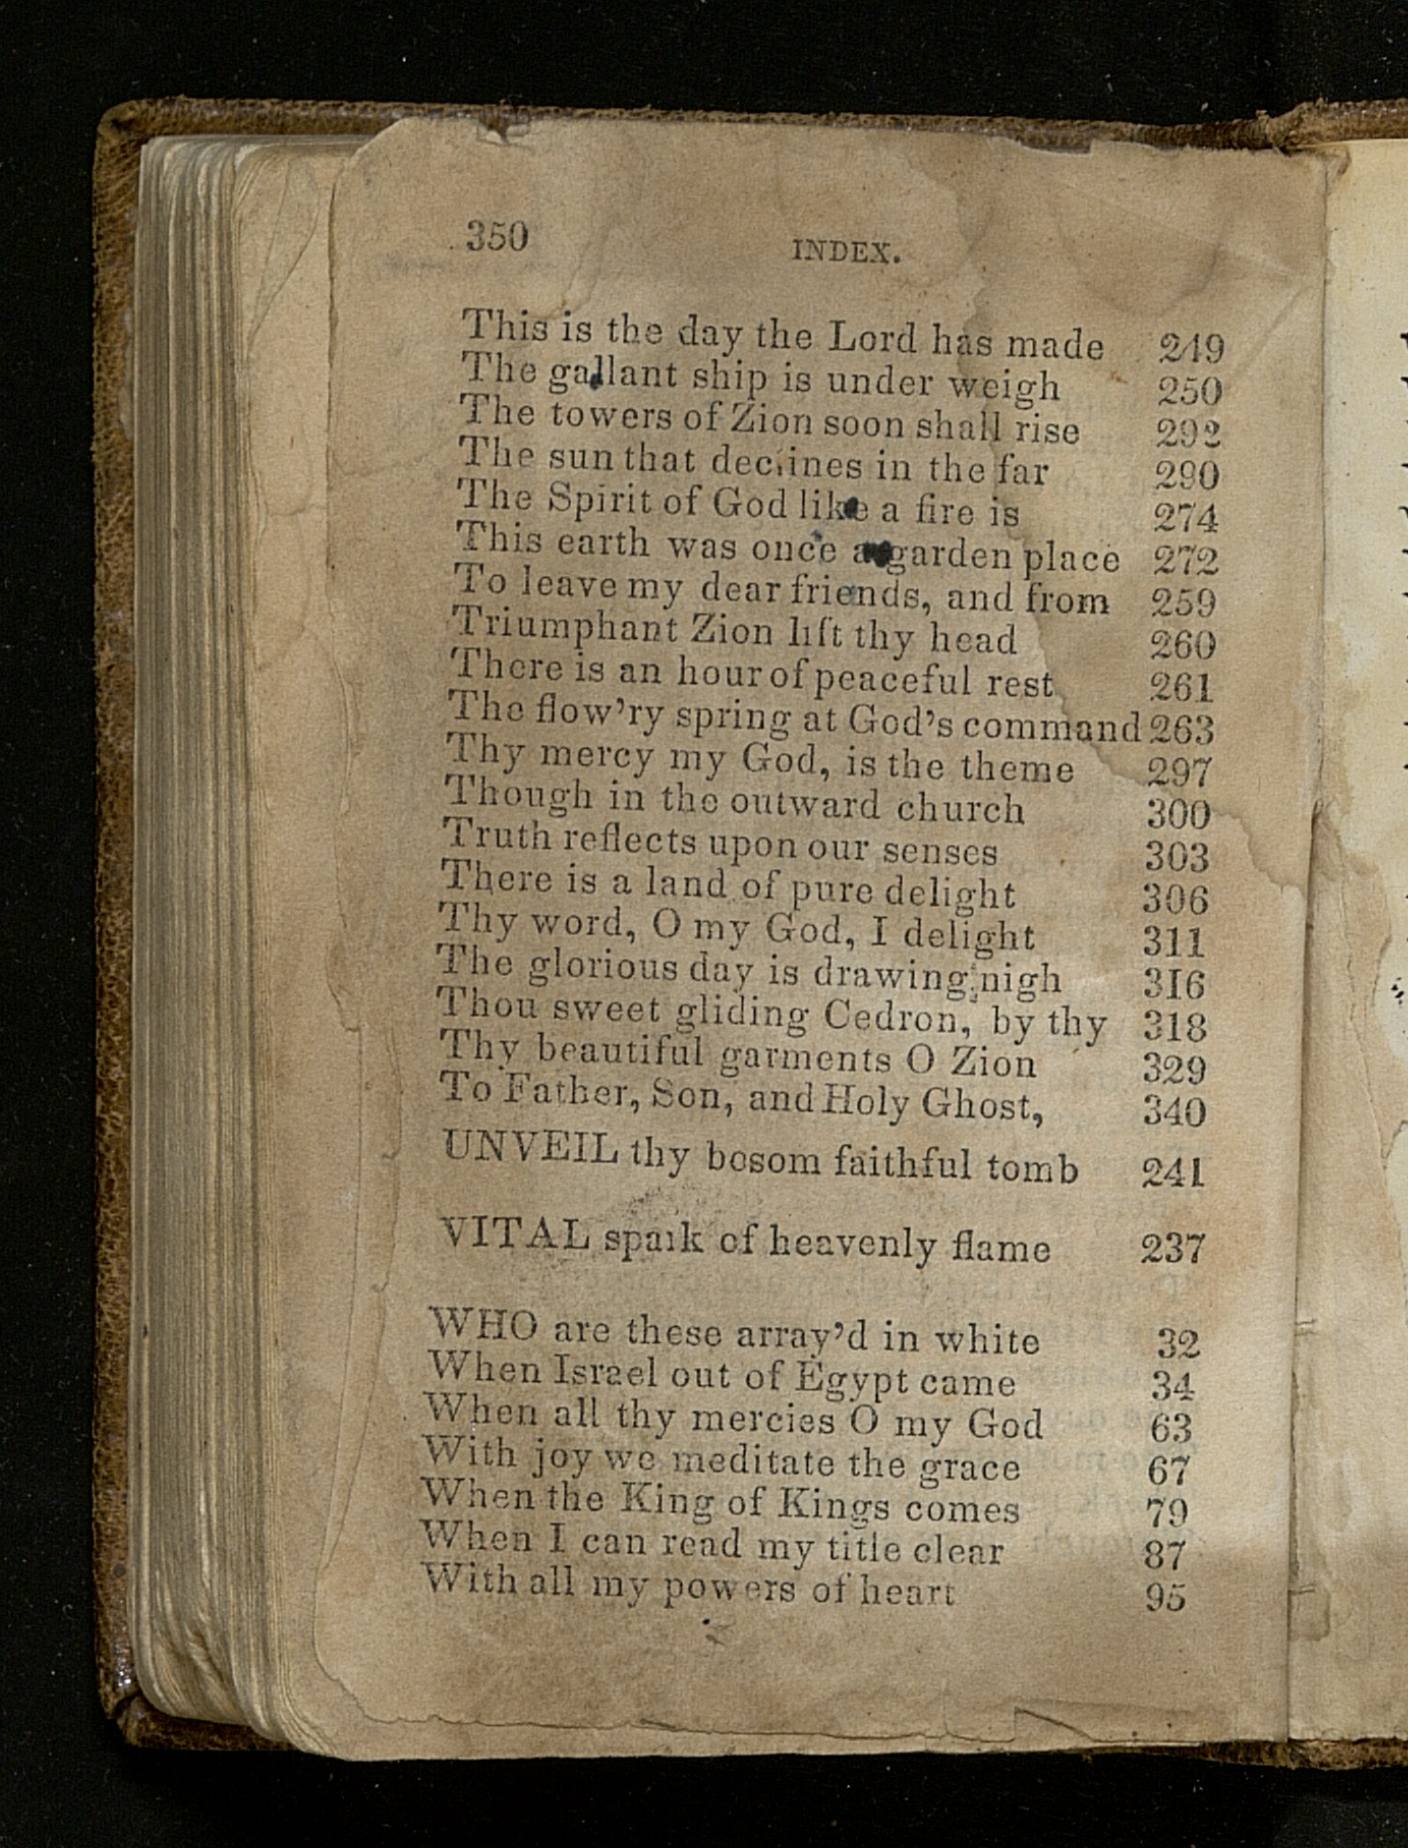 350
INDEX.
This is the day the Lord has made 249
The gallant ship is under weigh 250
The towers of Zion soon shall rise 292
The sun that declines in the far 290
The Spirit of God like a fire is 274
This earth was once a garden place 272
To leave my dear friends, and from 259
Triumphant Zion lift thy head 260
There is an hour of peaceful rest 261
The flow'ry spring at God's command 263
Thy mercy my God, is the theme 297
Though in the outward church 300
Truth reflects upon our senses 303
There is a land of pure delight 306
Thy word, O my God, I delight 311
The glorious day is drawing nigh 316
Thou sweet gliding Cedron, by thy 318
Thy beautiful garments O Zion 329
To Father, Son, and Holy Ghost, 340
UNVEIL thy bosom faithful tomb 241
VITAL spark of heavenly flame 237
WHO are these array'd in white 32
When Israel out of Egypt came 34
When all thy mercies O my God 63
With joy we meditate the grace 67
When the King of Kings comes 79
When I can read my title clear 87
With all my powers of heart 95